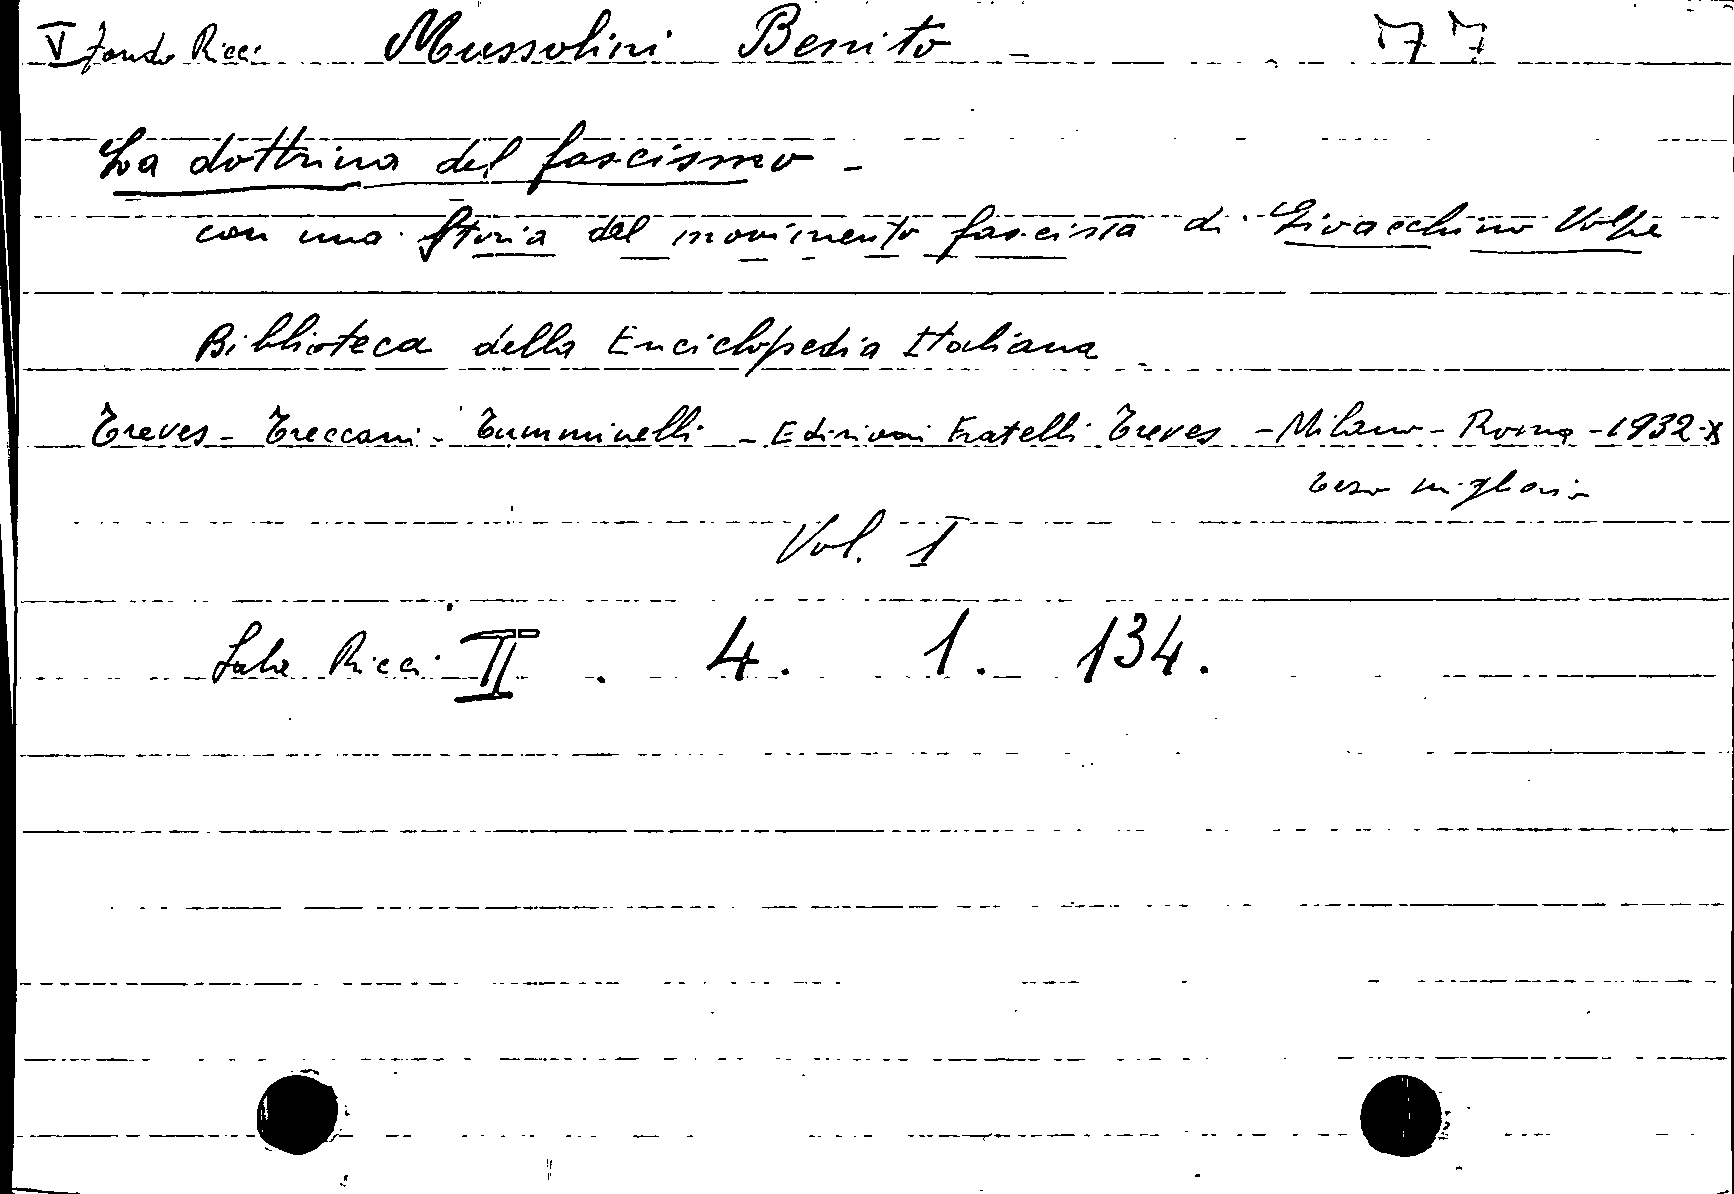 V Fondo Ricci Mussolini Benito - 77
La dottrina del fascismo -
con una Storia del movimento fascista di Gioacchino Volpe
Biblioteca della Enciclopedia Italiana
Treves - Treccani - Tumminelli - Edizioni Fratelli Treves - Milano - Roma - 1932-X
terzo migliaio
Vol. I
Sala Ricci II . 4. 1. 134.